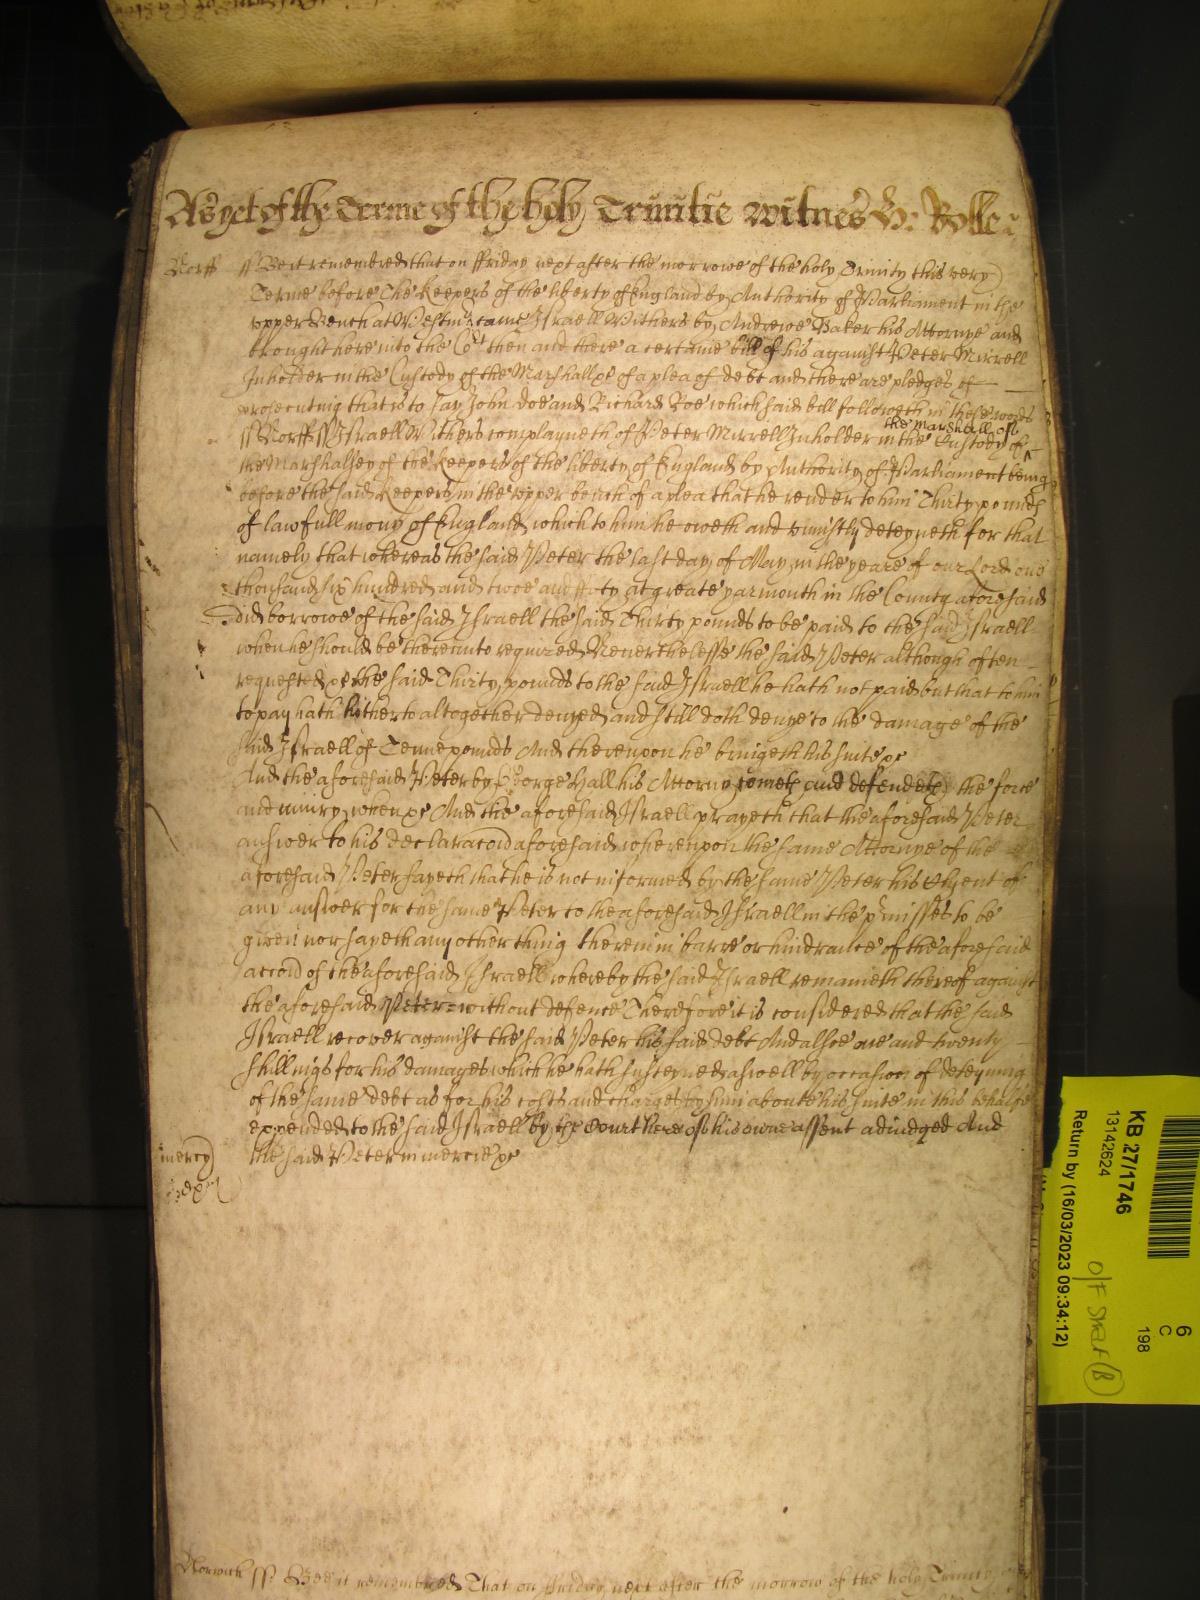 As yet of the Terme of the holy Trinitie Witnes H: Rolle
Norff ss Be it remembred that on ffriday next after the morrowe of the holy Trinity this very
Terme before the keepers of the liberty of England by Authority of Parliament in the
upper Bench at Westm̃ came Israell Withers by Andrewe Baker his Attornye and
brought here into the Cort then and there a certaine bill of his against Peter Mirrell
Inholder in the Custody of the Marshall &c of a plea of debt and there are pledges of
prosecuting that is to say John Doe and Richard Roe which said bill followeth in these words
the marshall of
ss Norff ss Israell Withers complayneth of Peter Mirrell Inholder in the Custody of
the Marshalsey of the keepers of the liberty of England by Authority of Parliament being
before the said keepers in the upper bench of a plea that he render to him Thirty pounds
of lawfull mony of England which to him he oweth and uniustly deteyneth for that
namely that whereas the said Peter the last day of May in the yeare of our Lord one
thousand six hundred and twoe and ffifty at greate yarmouth in the County aforesaid
did borrowe of the said Israell the said Thirty pounds to be paid to the said Israell
when he should be thereunto required Neverthelesse the said Peter although often
requested &c the said Thirty pounds to the said Israell he hath not paid but that to him
to pay hath hitherto altogether denyed and still doth denye to the damage of the
said Israell of Tenne pounds And thereupon he bringeth his suite &c
And the aforesaid Peter by George Hall his Attorny cometh and defendeth the force
and iniury when &c And the aforesaid Israell prayeth that the aforesaid Peter
answer to his declaracõn aforesaid whereupon the same Attornye of the
aforesaid Peter sayeth that he is not informed by the same Peter his Clyent of
any answer for the same Peter to the aforesaid Israell in the p̃misses to be
given nor sayeth any other thing therein in barre or hindrance of the aforesaid
accõn of the aforesaid Israell whereby the said Israell remaineth thereof against
the aforesaid Peter without defence Therefore it is considered that the said
Israell recover against the said Peter his said debt And alsoe one and twenty
shillings for his damages which he hath susteyned aswell by occasion of deteyning
of the same debt as for his costs and charges by him about his suite in this behalfe
expended to the said Israell by the Court here of his owne assent adiudged And
mercy the said Peter in mercie &c
Norwich ss. Bee it remembred That on ffriday next after the morrow of the holy Trinity
KB 27/1746
13142624
Return by (16/03/2023 09:34:12)
6
C
198
O/F Shelf B